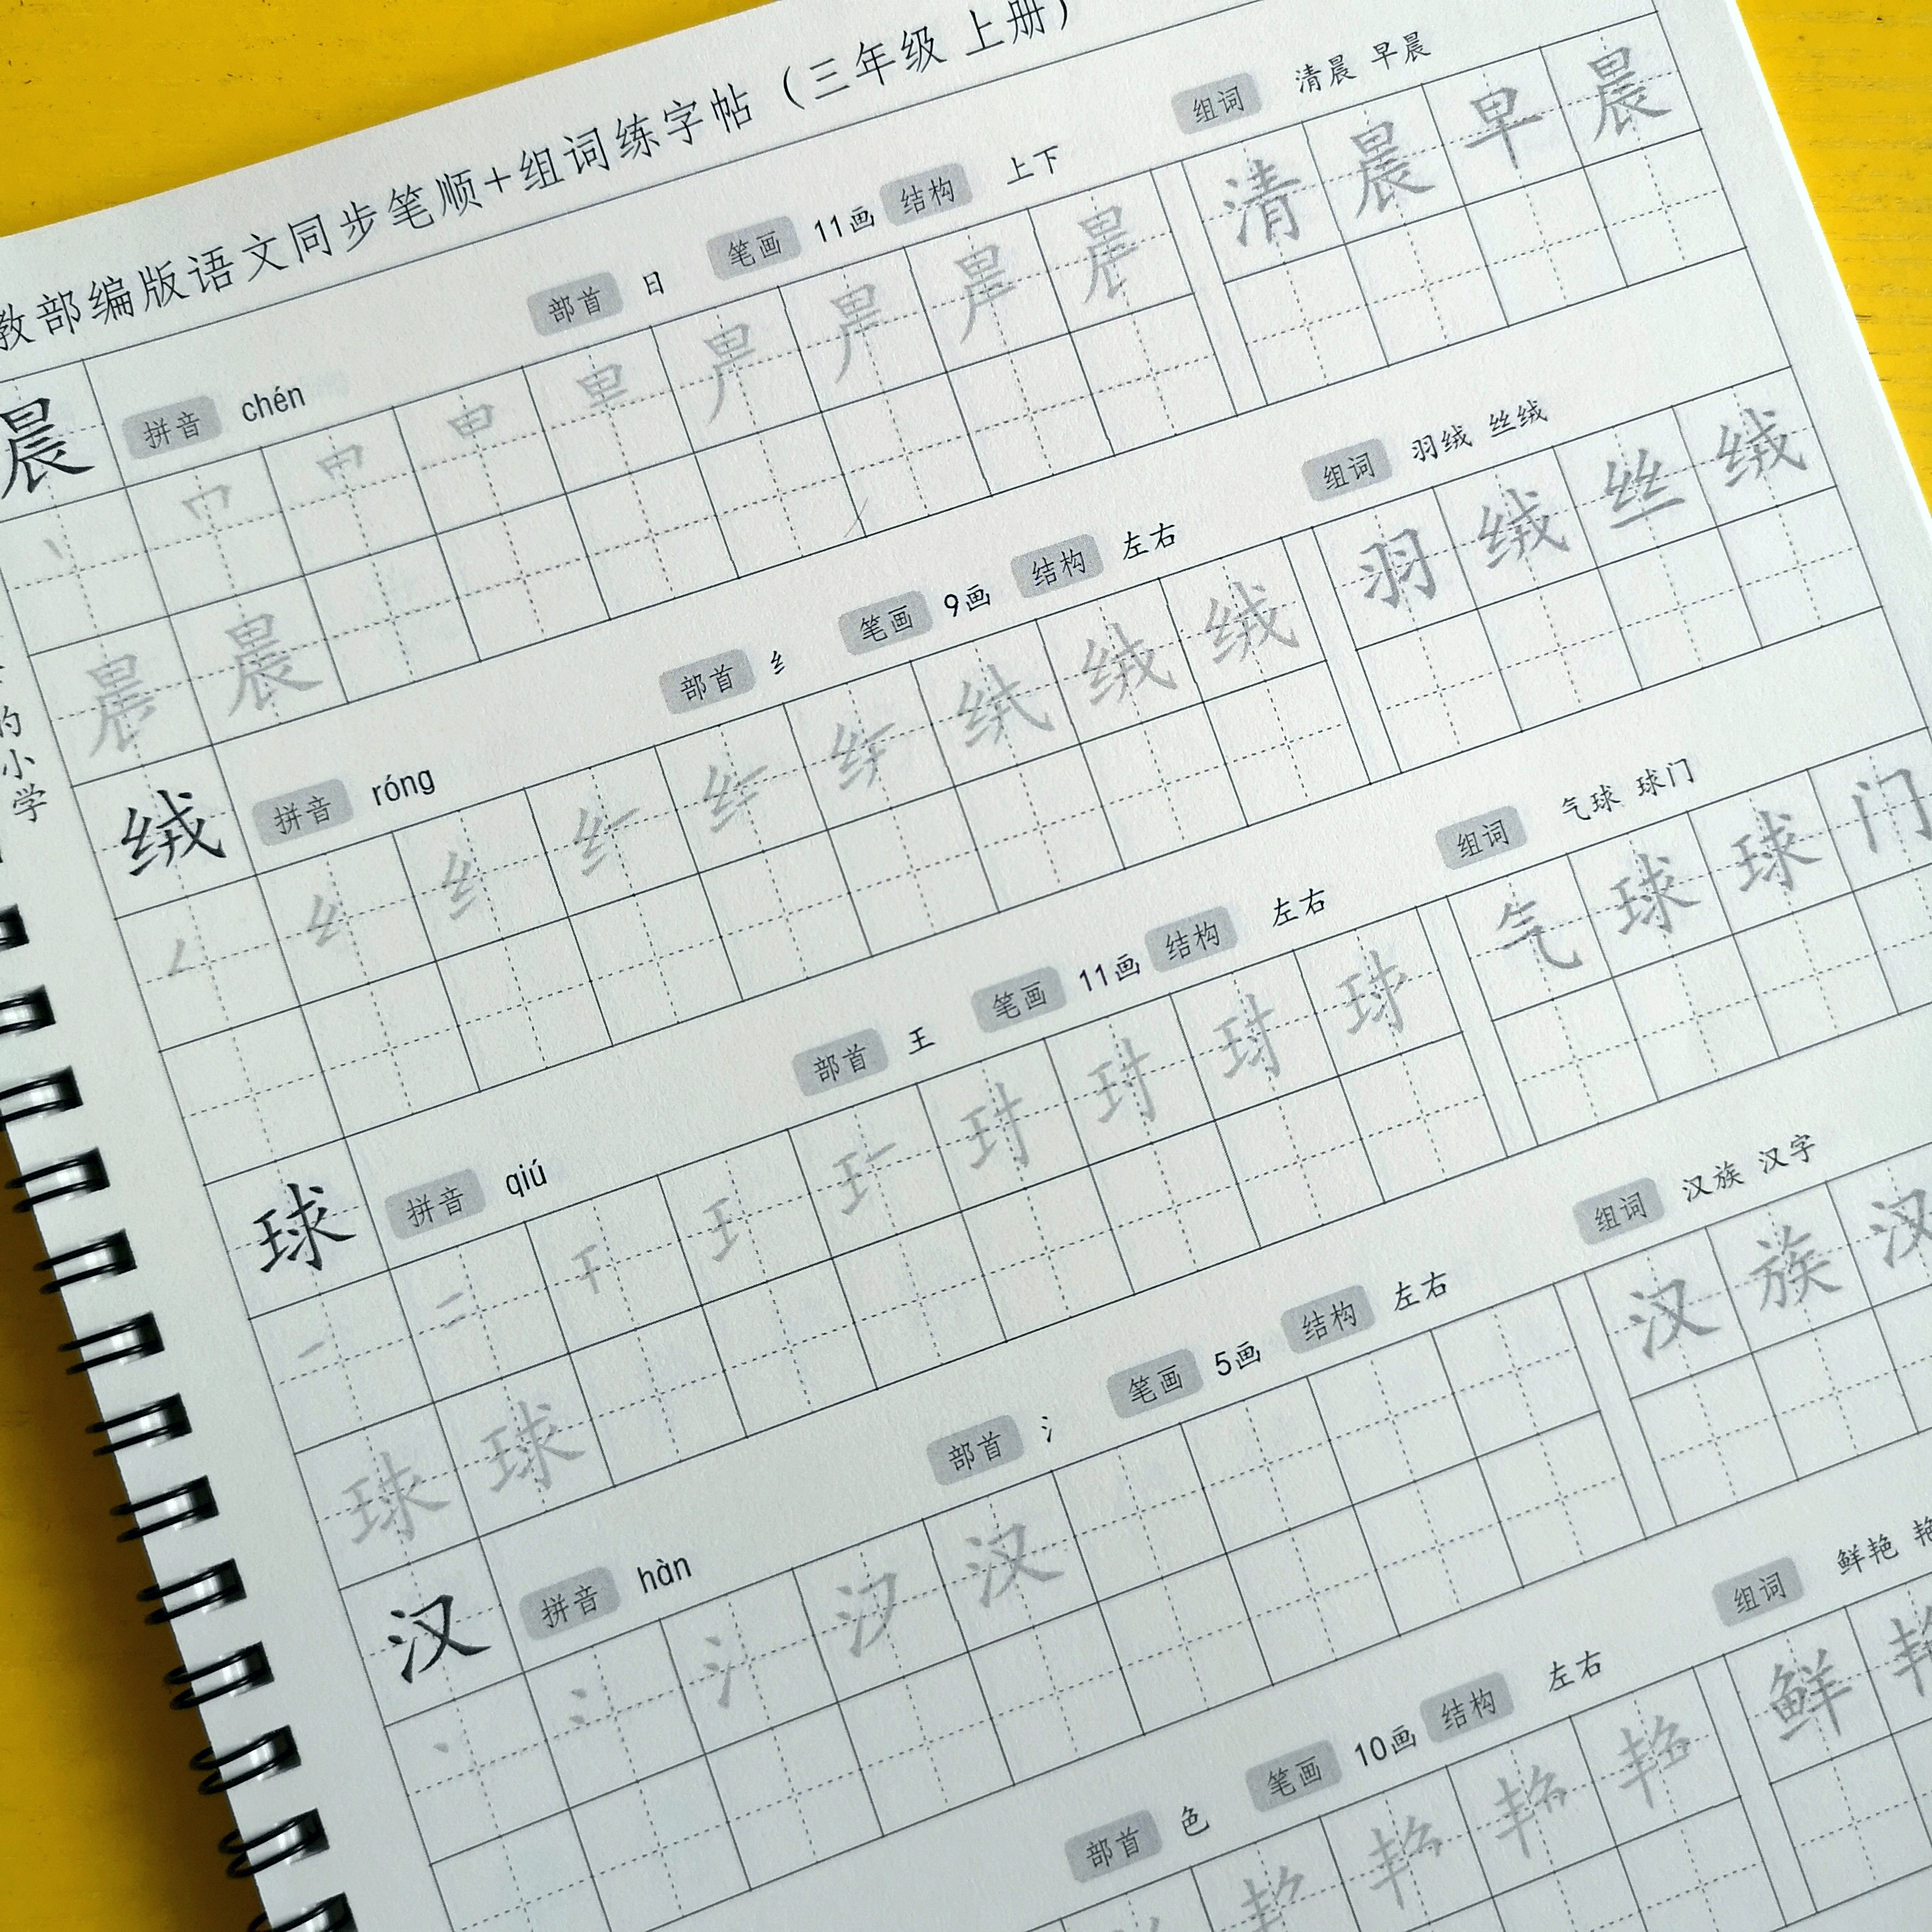 教部编版语文同步笔顺+组词练字帖（三年级 上册）
晨 拼音 chén 部首 日 笔画 11画 结构 上下 组词 清晨 早晨
清 晨 早 晨
晨 晨
的小学
绒 拼音 róng 部首 纟 笔画 9画 结构 左右 组词 羽绒 丝绒
纟 绒 羽 绒 丝 绒
球 拼音 qiú 部首 王 笔画 11画 结构 左右 组词 气球 球门
一 二 干 王 气 球 球 门
球 球
汉 拼音 hàn 部首 氵 笔画 5画 结构 左右 组词 汉族 汉字
丶 冫 氵 汉 汉 族 汉
部首 色 笔画 10画 结构 左右 组词 鲜艳 艳
鲜 艳